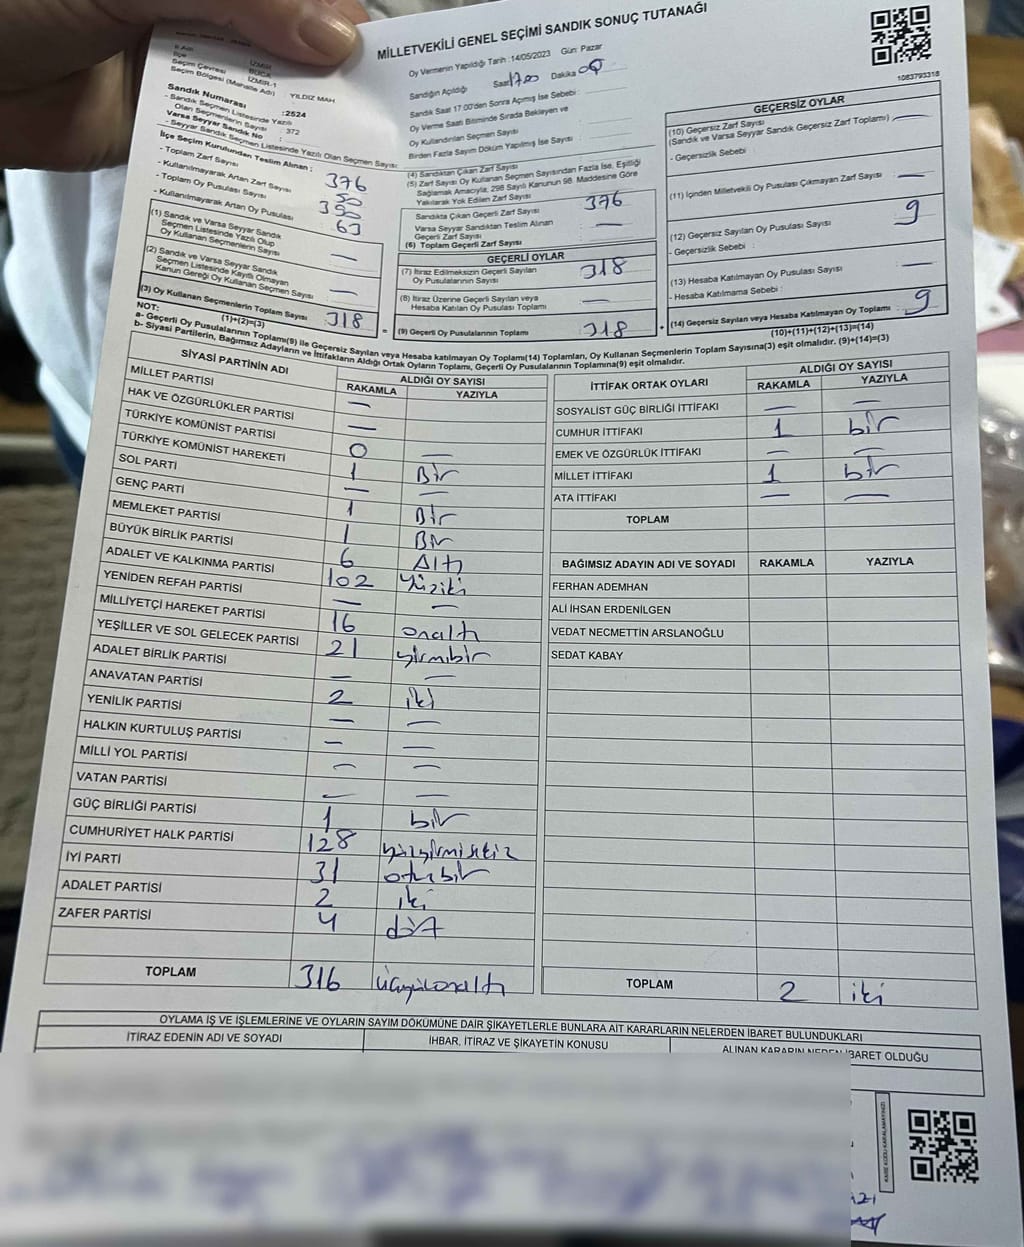 MİLLETVEKİLİ GENEL SEÇİMİ SANDIK SONUÇ TUTANAĞI
İl Adı : İZMİR
İlçe : BUCA
Seçim Çevresi : İZMİR-1
Seçim Bölgesi (Mahalle Adı) : YILDIZ MAH
Sandık Numarası :2524
- Sandık Seçmen Listesinde Yazılı
Olan Seçmenlerin Sayısı : 372
Varsa Seyyar Sandık No
- Seyyar Sandık Seçmen Listesinde Yazılı Olan Seçmen Sayısı
İlçe Seçim Kurulundan Teslim Alınan ;
- Toplam Zarf Sayısı : 376
- Kullanılmayarak Artan Zarf Sayısı
- Toplam Oy Pusulası Sayısı
- Kullanılmayarak Artan Oy Pusulası : 63
(1) Sandık ve Varsa Seyyar Sandık
Seçmen Listesinde Yazılı Olup
Oy Kullanan Seçmenlerin Sayısı —
(2) Sandık ve Varsa Seyyar Sandık
Seçmen Listesinde Kayıtlı Olmayan
Kanun Gereği Oy Kullanan Seçmen Sayısı —
(3) Oy Kullanan Seçmenlerin Toplam Sayısı : 318
(1)+(2)=(3)
Oy Vermenin Yapıldığı Tarih :14/05/2023 Gün: Pazar
Sandığın Açıldığı Saat 17.00 Dakika 00
Sandık Saat 17.00'den Sonra Açılmış İse Sebebi :
Oy Verme Saati Bitiminde Sırada Bekleyen ve
Oy Kullandırılan Seçmen Sayısı :
Birden Fazla Sayım Döküm Yapılmış İse Sayısı :
(4) Sandıktan Çıkan Zarf Sayısı
(5) Zarf Sayısı Oy Kullanan Seçmen Sayısından Fazla İse, Eşitliği
Sağlamak Amacıyla, 298 Sayılı Kanunun 98. Maddesine Göre
Yakılarak Yok Edilen Zarf Sayısı
Sandıkta Çıkan Geçerli Zarf Sayısı 376
Varsa Seyyar Sandıktan Teslim Alınan
Geçerli Zarf Sayısı —
(6) Toplam Geçerli Zarf Sayısı
GEÇERLİ OYLAR
(7) İtiraz Edilmeksizin Geçerli Sayılan
Oy Pusulalarının Sayısı 318
(8) İtiraz Üzerine Geçerli Sayılan veya
Hesaba Katılan Oy Pusulası Toplamı —
= (9) Geçerli Oy Pusulalarının Toplamı : 318
1083793318
GEÇERSİZ OYLAR
(10) Geçersiz Zarf Sayısı
(Sandık ve Varsa Seyyar Sandık Geçersiz Zarf Toplamı) —
- Geçersizlik Sebebi :
(11) İçinden Milletvekili Oy Pusulası Çıkmayan Zarf Sayısı —
(12) Geçersiz Sayılan Oy Pusulası Sayısı : 9
- Geçersizlik Sebebi :
(13) Hesaba Katılmayan Oy Pusulası Sayısı —
- Hesaba Katılmama Sebebi :
+ (14) Geçersiz Sayılan veya Hesaba Katılmayan Oy Toplamı : 9
(10)+(11)+(12)+(13)=(14)
NOT:
a- Geçerli Oy Pusulalarının Toplamı(9) ile Geçersiz Sayılan veya Hesaba katılmayan Oy Toplamı(14) Toplamları, Oy Kullanan Seçmenlerin Toplam Sayısına(3) eşit olmalıdır. (9)+(14)=(3)
b- Siyasi Partilerin, Bağımsız Adayların ve İttifakların Aldığı Ortak Oyların Toplamı, Geçerli Oy Pusulalarının Toplamına(9) eşit olmalıdır.
SİYASİ PARTİNİN ADI ALDIĞI OY SAYISI
RAKAMLA YAZIYLA
MİLLET PARTİSİ —
HAK VE ÖZGÜRLÜKLER PARTİSİ —
TÜRKİYE KOMÜNİST PARTİSİ 0 —
TÜRKİYE KOMÜNİST HAREKETİ 1 Bir
SOL PARTİ — —
GENÇ PARTİ 1 Bir
MEMLEKET PARTİSİ 1 Bir
BÜYÜK BİRLİK PARTİSİ 6 Altı
ADALET VE KALKINMA PARTİSİ 102 Yüziki
YENİDEN REFAH PARTİSİ — —
MİLLİYETÇİ HAREKET PARTİSİ 16 onaltı
YEŞİLLER VE SOL GELECEK PARTİSİ 21 yirmibir
ADALET BİRLİK PARTİSİ — —
ANAVATAN PARTİSİ 2 iki
YENİLİK PARTİSİ — —
HALKIN KURTULUŞ PARTİSİ — —
MİLLİ YOL PARTİSİ — —
VATAN PARTİSİ — —
GÜÇ BİRLİĞİ PARTİSİ 1 bir
CUMHURİYET HALK PARTİSİ 128 yüzyirmisekiz
İYİ PARTİ 31 otuzbir
ADALET PARTİSİ 2 iki
ZAFER PARTİSİ 4 dört
TOPLAM 316 üçyüzonaltı
İTTİFAK ORTAK OYLARI ALDIĞI OY SAYISI
RAKAMLA YAZIYLA
SOSYALİST GÜÇ BİRLİĞİ İTTİFAKI — —
CUMHUR İTTİFAKI 1 bir
EMEK VE ÖZGÜRLÜK İTTİFAKI — —
MİLLET İTTİFAKI 1 bir
ATA İTTİFAKI — —
TOPLAM
BAĞIMSIZ ADAYIN ADI VE SOYADI RAKAMLA YAZIYLA
FERHAN ADEMHAN
ALİ İHSAN ERDENİLGEN
VEDAT NECMETTİN ARSLANOĞLU
SEDAT KABAY
TOPLAM 2 iki
OYLAMA İŞ VE İŞLEMLERİNE VE OYLARIN SAYIM DÖKÜMÜNE DAİR ŞİKAYETLERLE BUNLARA AİT KARARLARIN NELERDEN İBARET BULUNDUKLARI
İTİRAZ EDENİN ADI VE SOYADI İHBAR, İTİRAZ VE ŞİKAYETİN KONUSU ALINAN KARARIN NEDEN İBARET OLDUĞU
KARE KODU KARALAMAYINIZ!